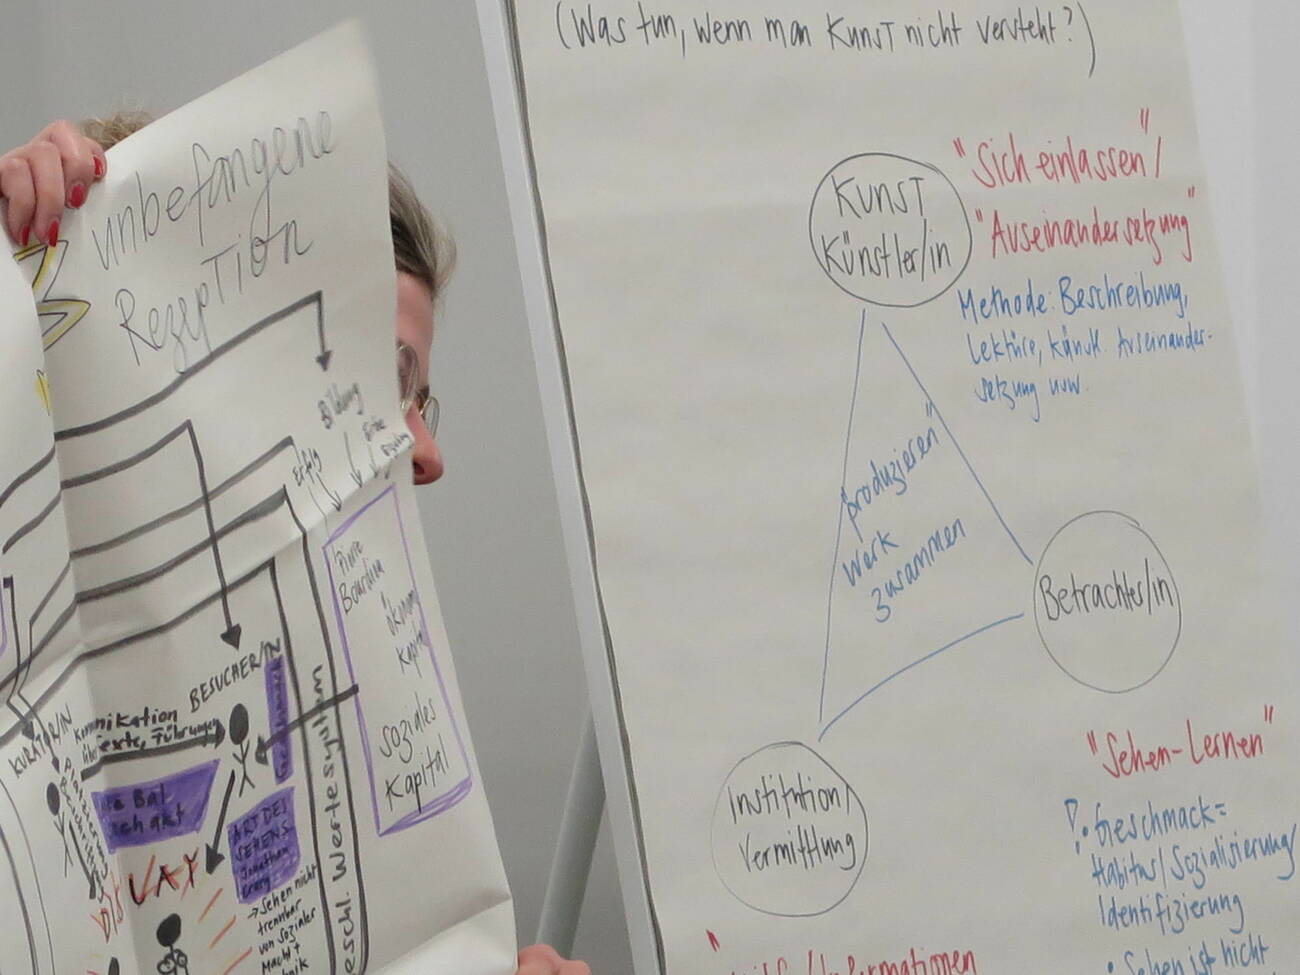 unbefangene
Rezeption
Bildung
Erfolg
Pierre
Bourdieu
ökonom.
Kapital
soziales
Kapital
BESUCHER/IN
KURATOR/IN
Kommunikation
über Texte, Führungen
Mieke Bal
Sehakt
ART DES
SEHENS
Jonathan
Crary
→ Sehen nicht
trennbar
von sozialer
Macht +
Technik
Gesellschl. Wertesystem
(Was tun, wenn man Kunst nicht versteht?)
KUNST
Künstler/in
"Sich einlassen"/
"Auseinandersetzung"
Methode: Beschreibung,
Lektüre, künstl. Auseinander-
setzung usw.
"produzieren"
Werk
zusammen
Betrachter/in
Institution/
Vermittlung
"Sehen-Lernen"
! • Geschmack =
Habitus/Sozialisierung/
Identifizierung
• Sehen ist nicht
/Informationen